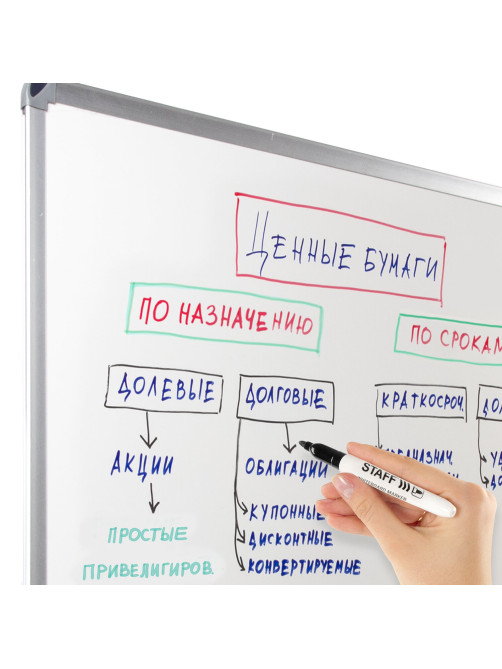 ЦЕННЫЕ БУМАГИ
ПО НАЗНАЧЕНИЮ
ПО СРОКАМ
ДОЛЕВЫЕ
ДОЛГОВЫЕ
КРАТКОСРОЧ.
АКЦИИ
ОБЛИГАЦИИ
ПРОСТЫЕ
ПРИВЕЛИГИРОВ.
КУПОННЫЕ
ДИСКОНТНЫЕ
КОНВЕРТИРУЕМЫЕ
STAFF
WHITEBOARD MARKER